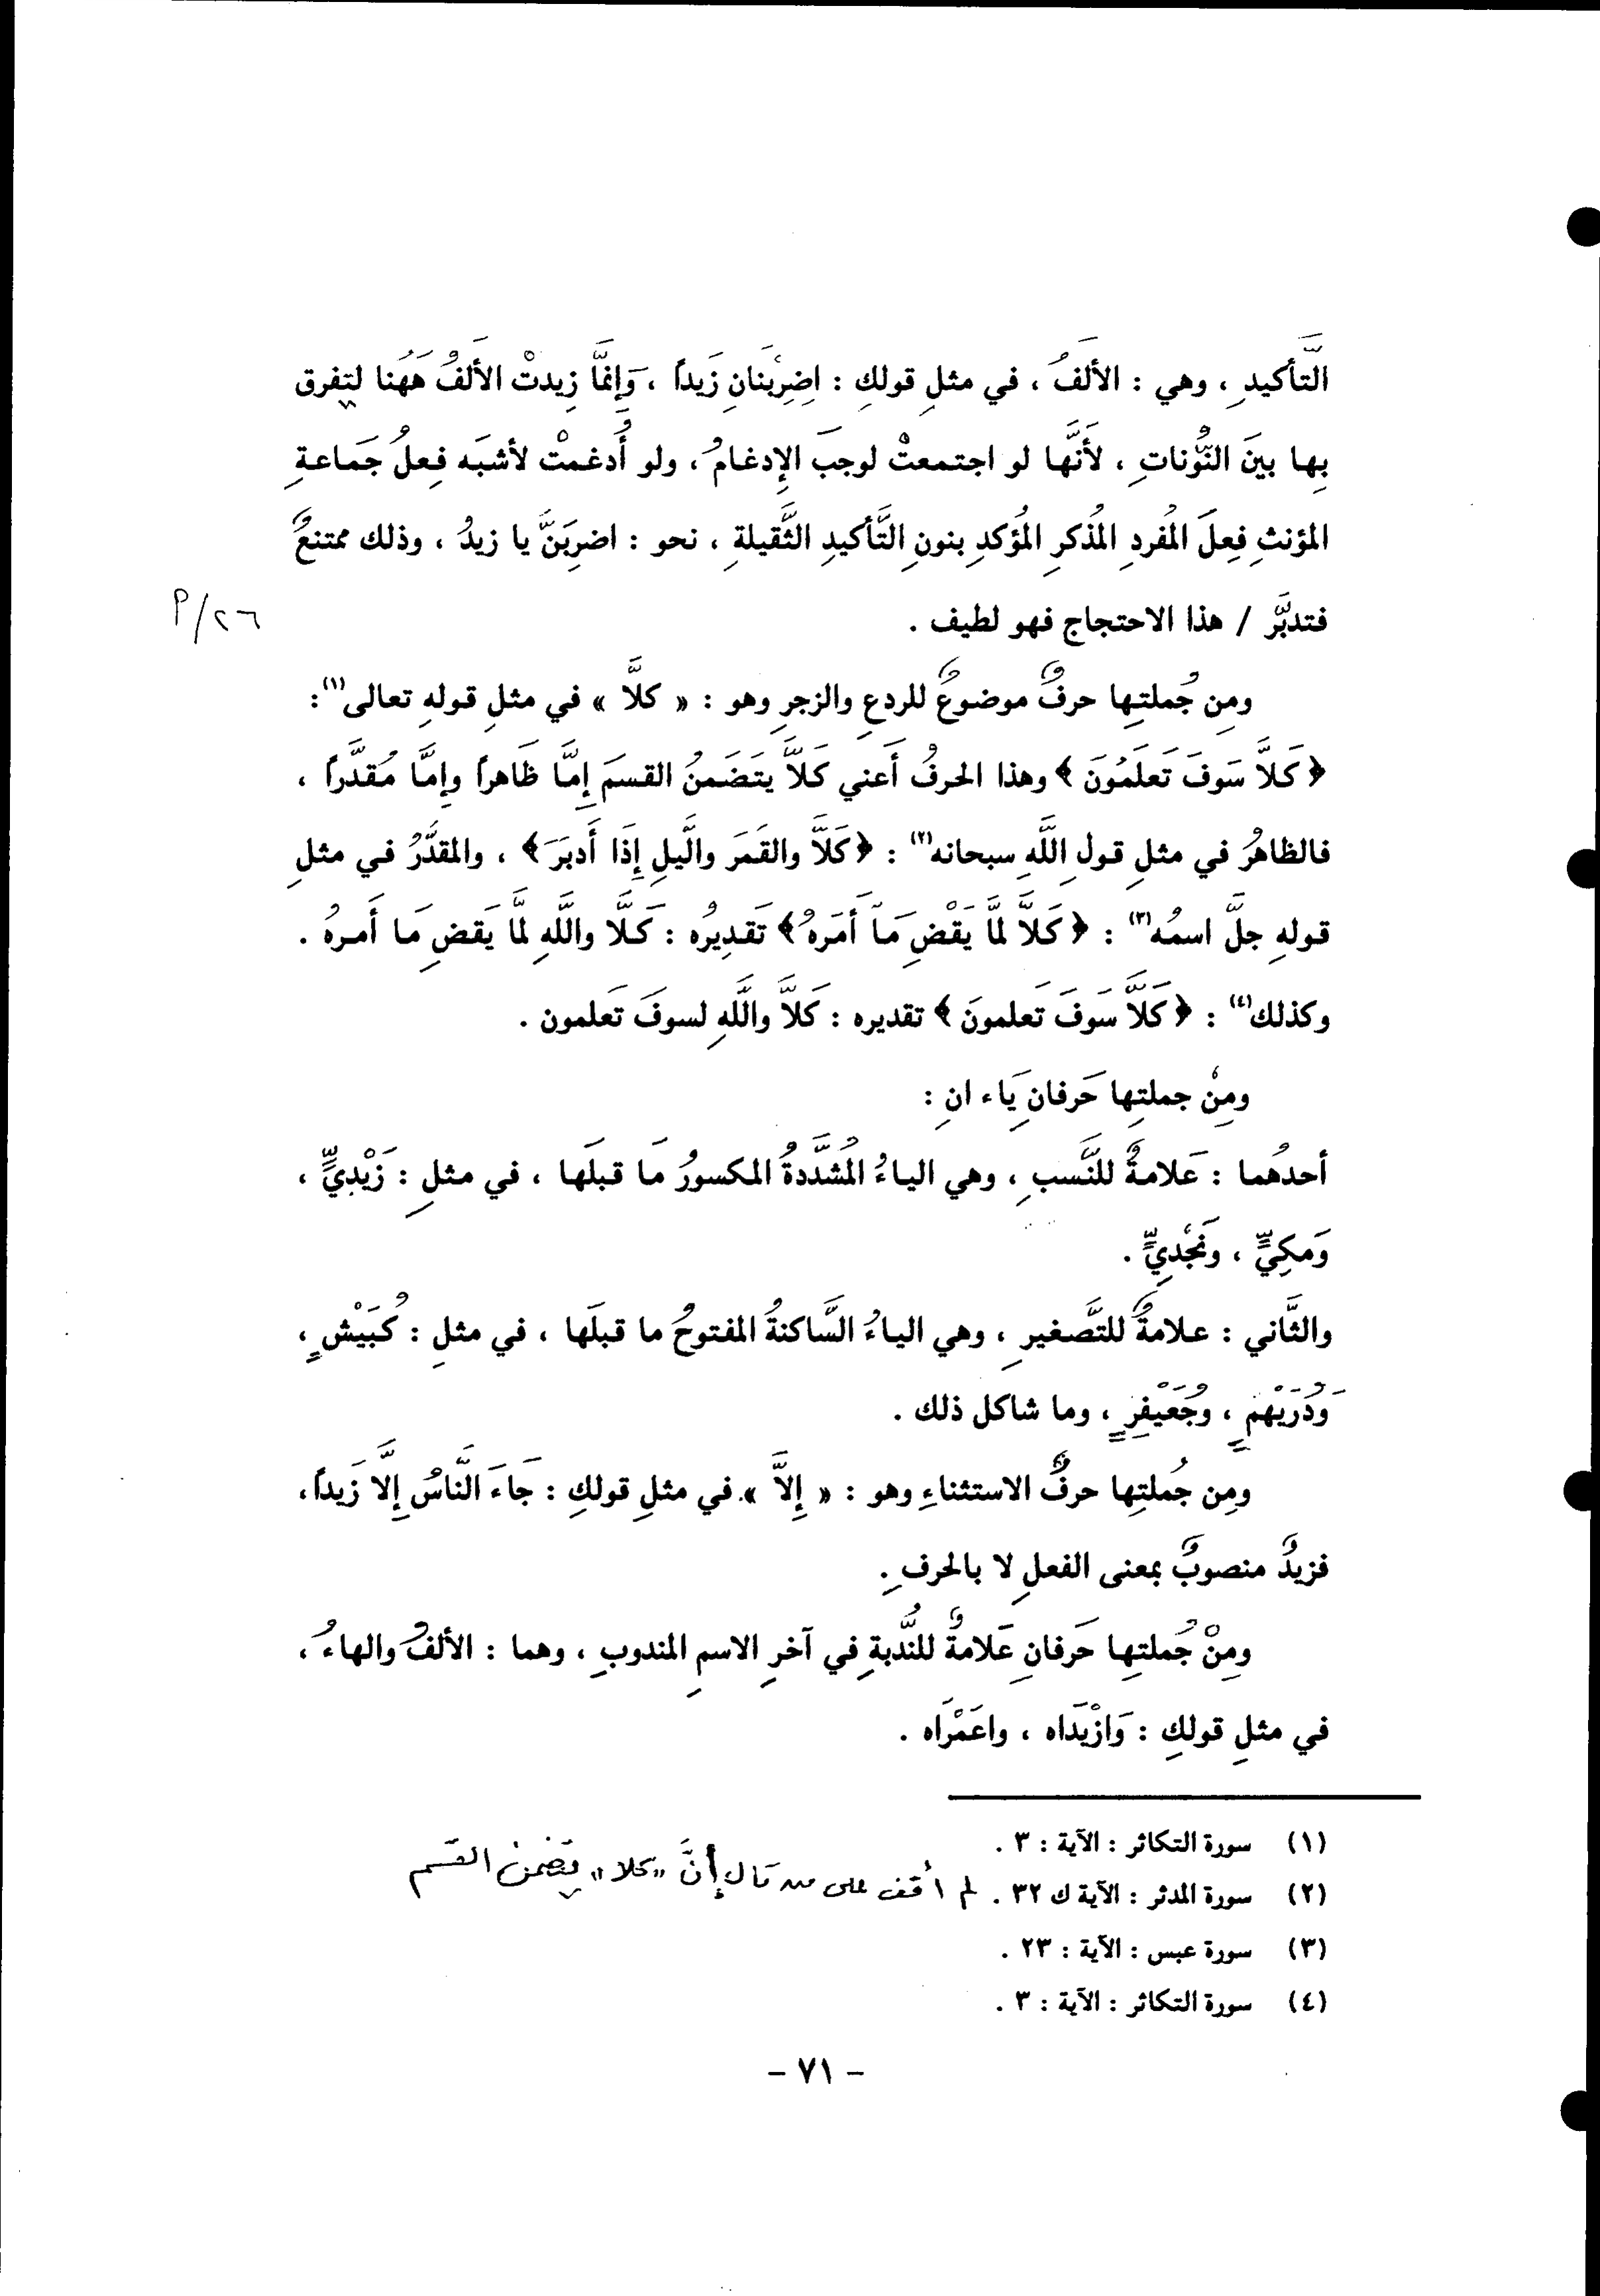 التَّأكيدِ ، وهي : الألَفُ ، في مثلِ قولكِ : اِضرِبْنَانِ زَيداً ، وَإنَّما زِيدتْ الأَلفُ هَهُنا لتِفرق
بِها بينَ النُّوناتِ ، لأنَّها لو اجتمعتْ لوجبَ الإِدغامُ ، ولو أُدغمتْ لأشبَه فِعلُ جَماعةِ
المؤنثِ فِعلَ المُفردِ المُذكرِ المُؤكدِ بنونِ التَّأكيدِ الثَّقيلةِ ، نحو : اضرِبَنَّ يا زيدُ ، وذلك ممتنعٌ
فتدبَّر / هذا الاحتجاج فهو لطيف .
٢٦/م
ومِن جُملتِها حرفٌ موضوعٌ للردعِ والزجرِ وهو : « كلَّا » في مثلِ قولهِ تعالى(١):
﴿ كَلاَّ سَوفَ تَعلَمُونَ ﴾ وهذا الحرفُ أَعني كَلاَّ يتَضَمنُ القسمَ إمَّا ظَاهراً وإمَّا مُقدَّراً ،
فالظاهرُ في مثلِ قولِ اللَّهِ سبحانه(٢) : ﴿كَلاَّ والقَمَر والَّيلِ إِذَا أَدبَرَ﴾ ، والمقدَّرُ في مثلِ
قولهِ جلَّ اسمُه(٣) : ﴿ كَلاَّ لمَّا يَقْضِ مَآ أَمَرهُ﴾ تَقديرُه : كَلَّا واللَّهِ لمَّا يَقضِ مَا أَمرهُ .
وكذلك(٤) : ﴿ كَلاَّ سَوفَ تَعلمونَ ﴾ تقديره : كَلاَّ واللَّهِ لسوفَ تَعلمون .
ومِنْ جملتِها حَرفانِ يَاء انِ :
أحدُهما : عَلامةٌ للنَّسبِ ، وهي الياءُ المُشدَّدةُ المكسورُ مَا قبلَها ، في مثلِ : زَيْدِيٍّ ،
وَمكِيٍّ ، ونَجْديٍّ .
والثَّاني : علامةٌ للتَّصغيرِ ، وهي الياءُ السَّاكنةُ المفتوحُ ما قبلَها ، في مثلِ : كُبَيْشٍ ،
وَدُرَيْهمٍ ، وجُعَيْفِرٍ ، وما شاكل ذلك .
ومِن جُملتِها حرفُ الاستثناءِ وهو : « إلاَّ » في مثلِ قولكِ : جَاءَ النَّاسُ إلَّا زَيداً ،
فزيدٌ منصوبٌ بمعنى الفعلِ لا بالحرفِ .
ومِنْ جُملتِها حَرفانِ عَلامةٌ للنُّدبةِ في آخرِ الاسمِ المندوبِ ، وهما : الألفُ والهاءُ ،
في مثلِ قولكِ : وَازْيَدَاه ، واعَمْرَاه .
(١) سورة التكاثر : الآية : ٣ .
(٢) سورة المدثر : الآية ك ٣٢ . لم أقف على من قال إنَّ «كلا» يتضمن القسم
(٣) سورة عبس : الآية : ٢٣ .
(٤) سورة التكاثر : الآية : ٣ .
- ٧١ -